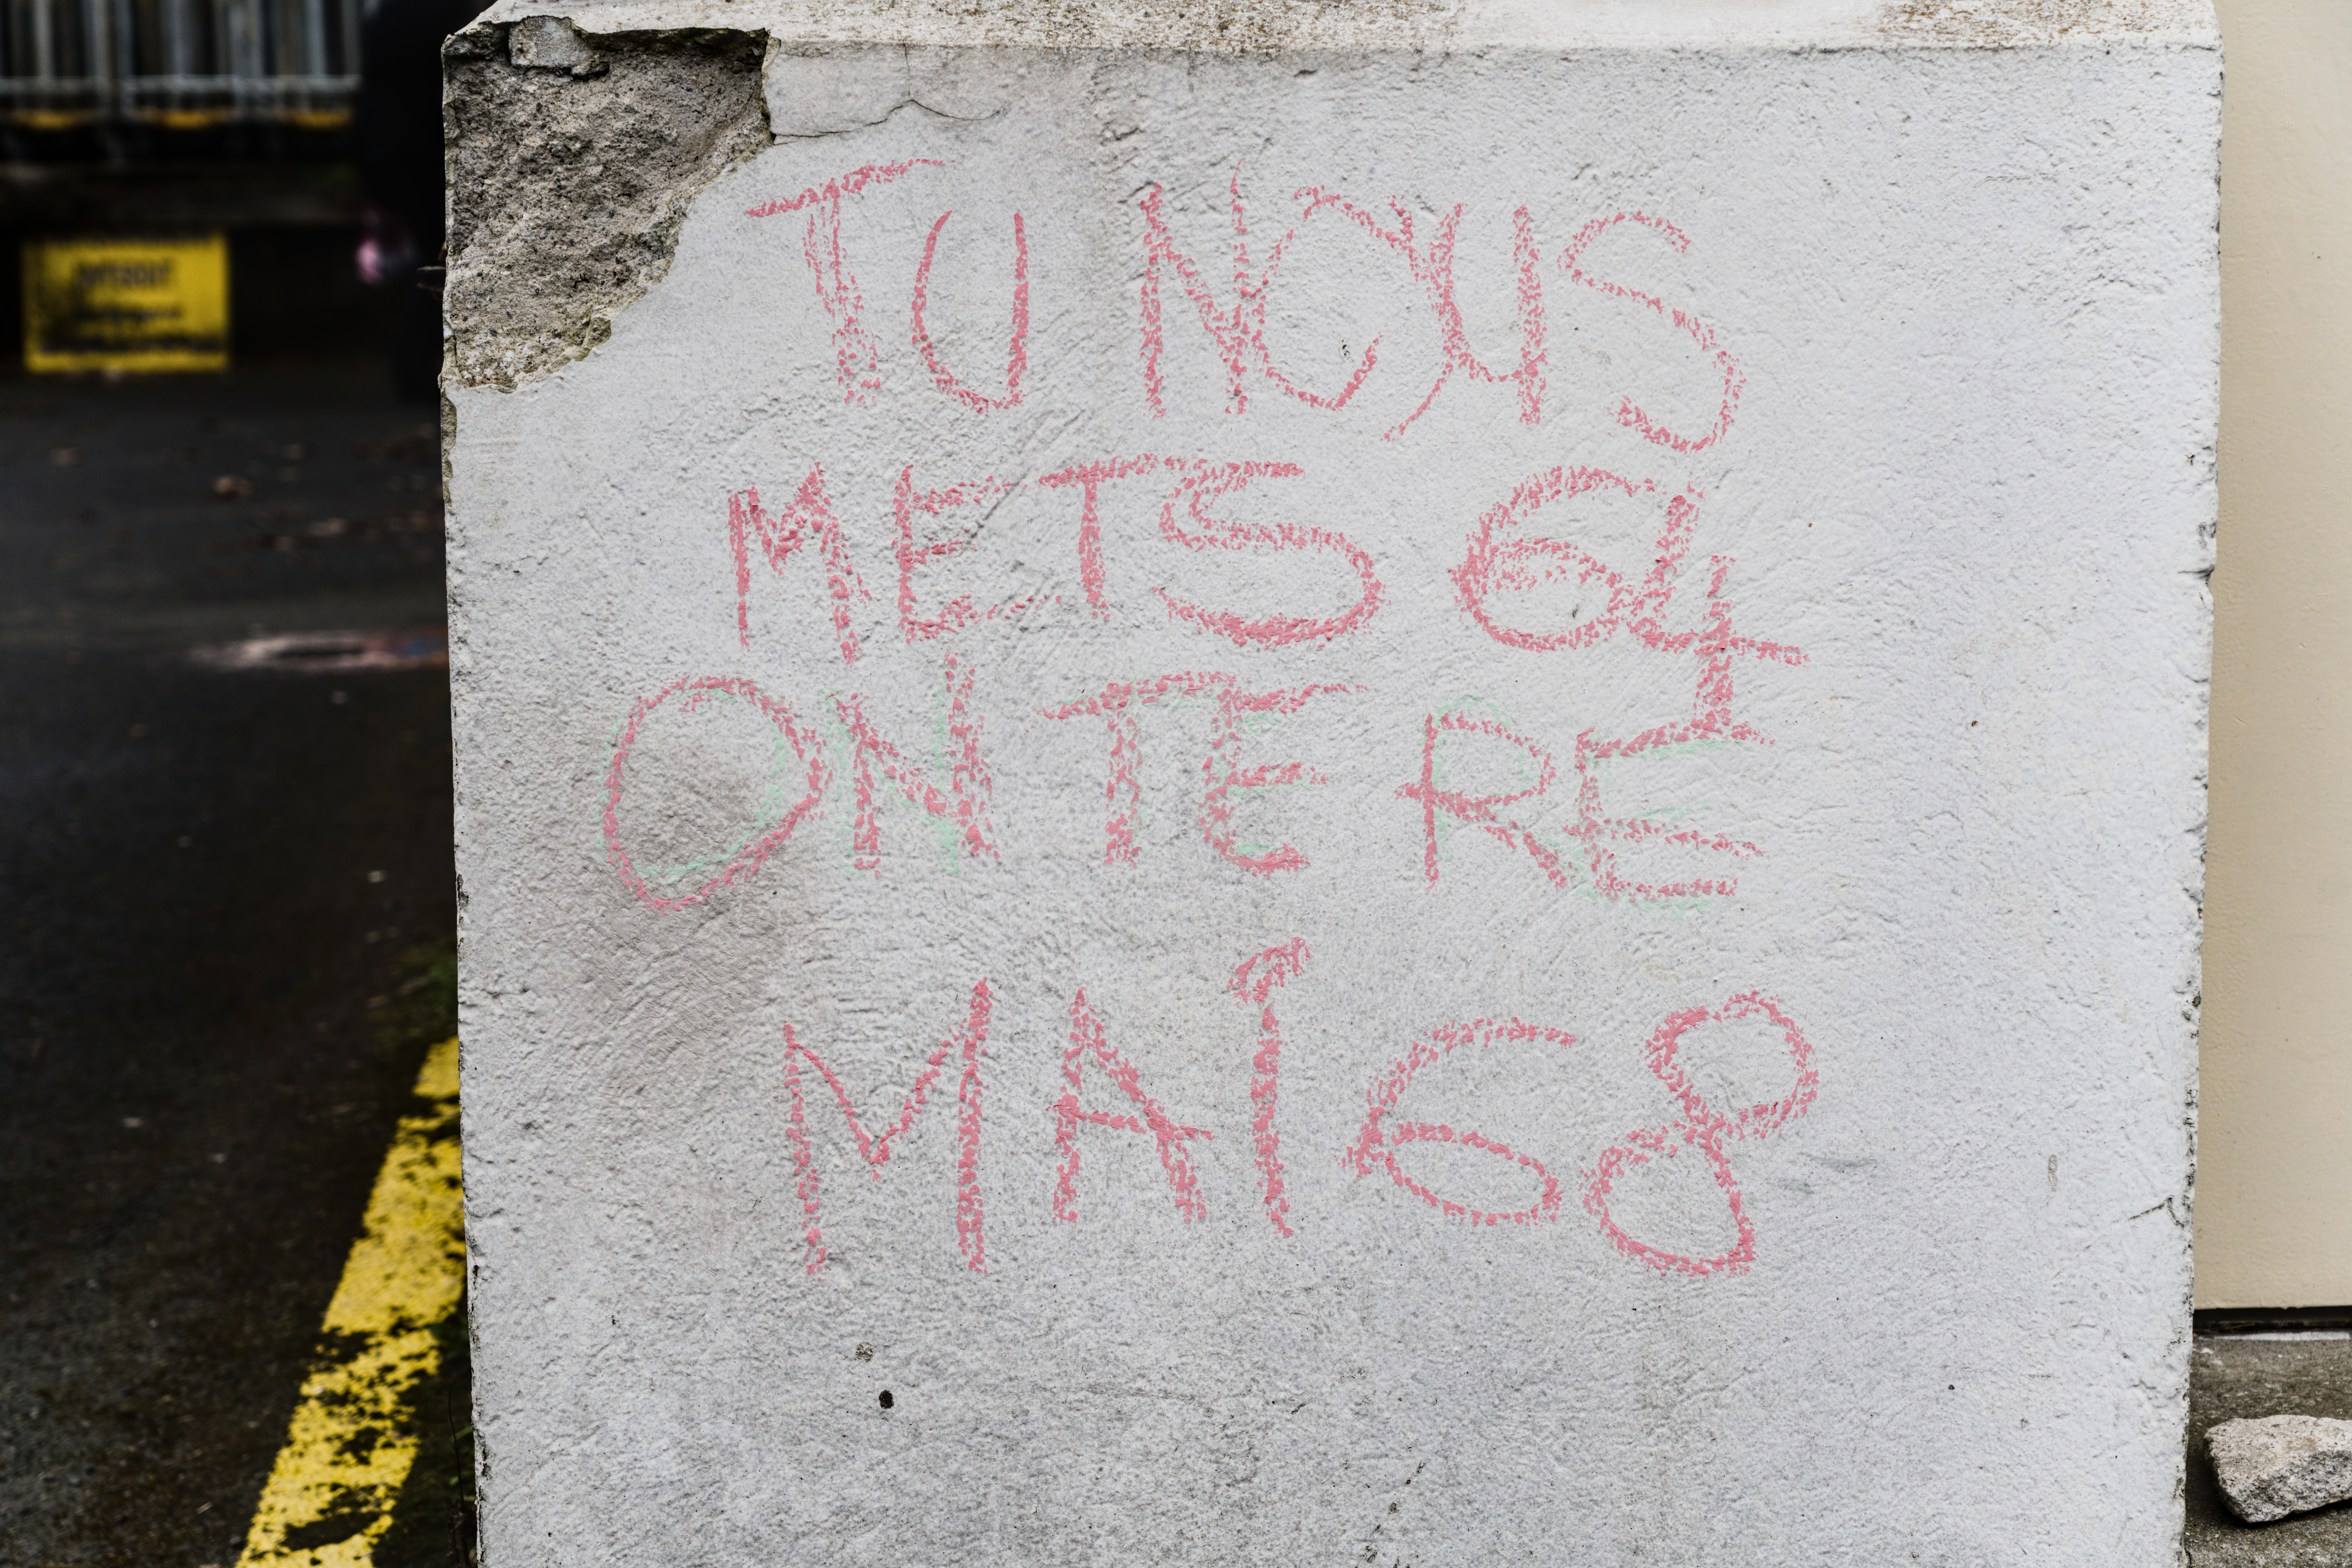 TU NOUS
METS 64
ON TE RE
MAI 68